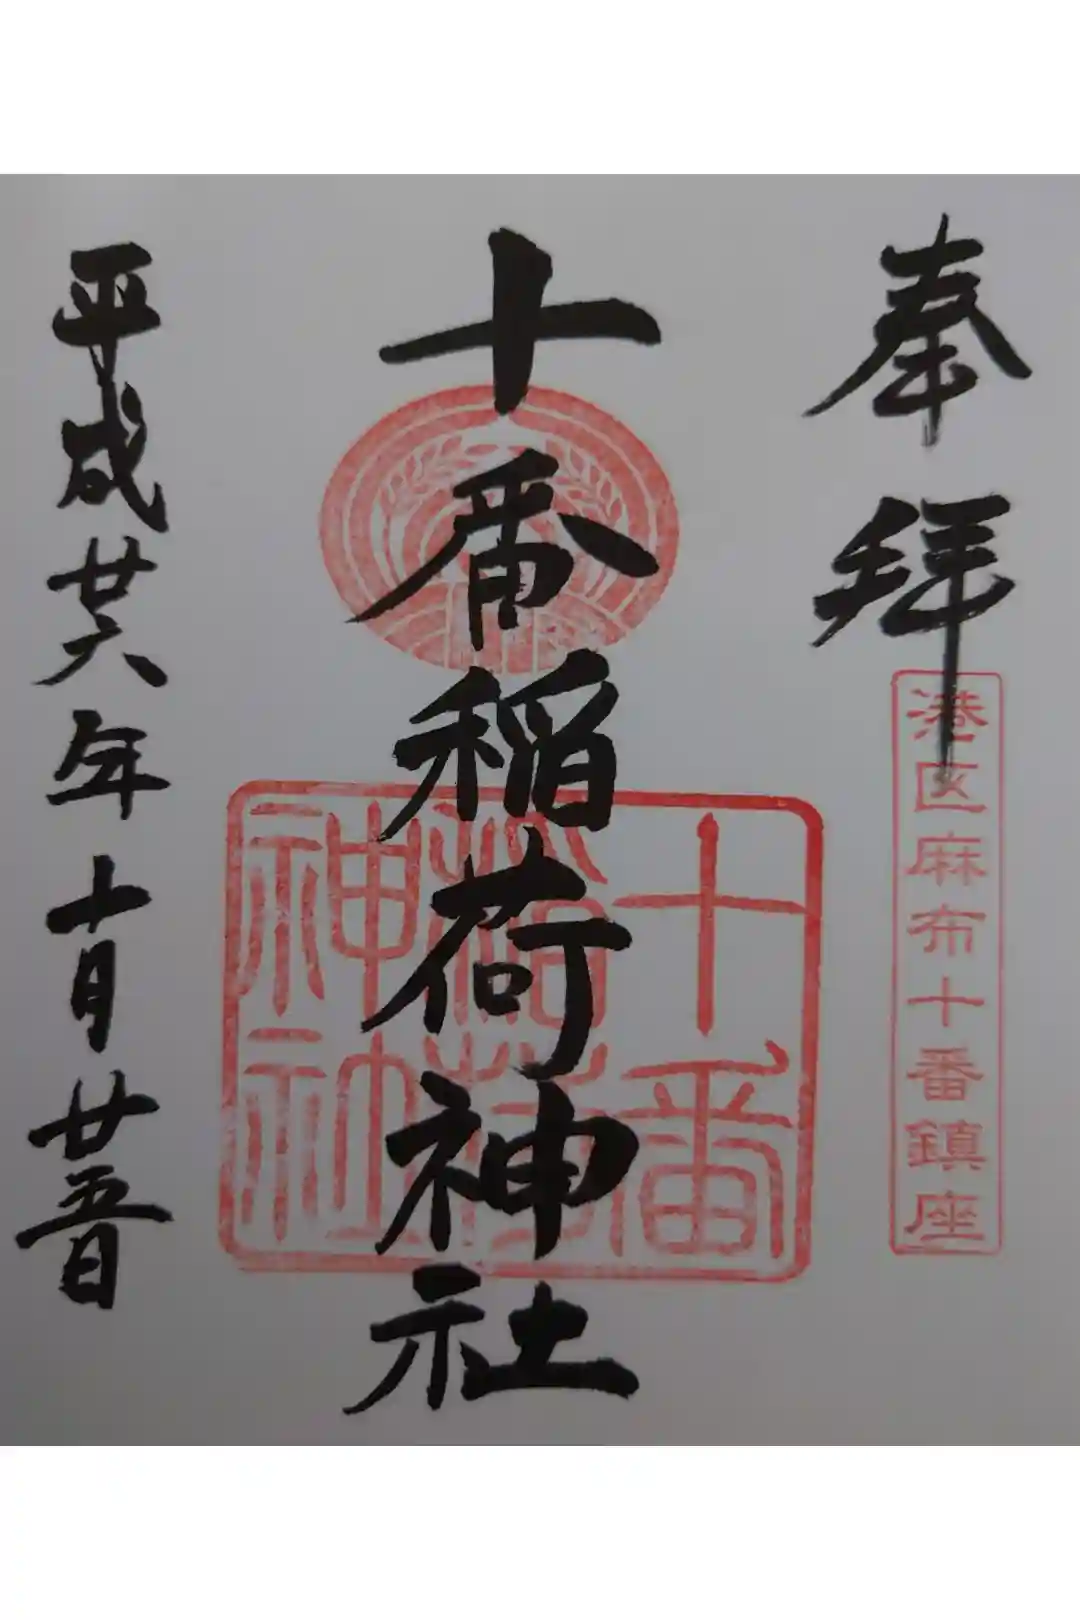 奉拝
港区麻布十番鎮座
十番稲荷神社
十番
稲荷
神社
平成廿六年十月廿五日